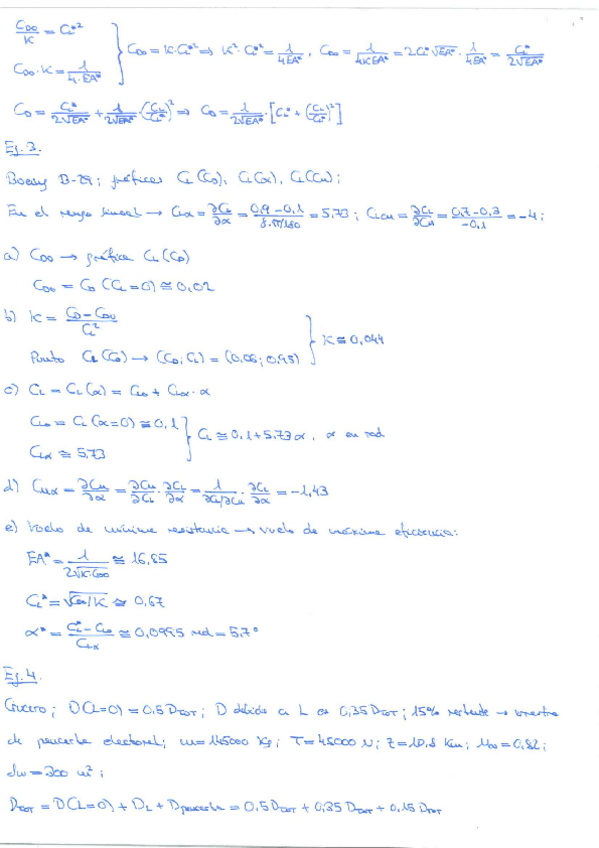 C_D0/K = C_L*² } C_D0 = K·C_L*² ⇒ K²·C_L*² = 1/4EA*², C_D0 = 1/4KEA*² = 2C_L*√EA*·1/4EA* = C_L*/2√EA*
C_D0·K = 1/4·EA*²
C_D = C_L*/2√EA* + 1/2√EA*·(C_L/C_L*)² ⇒ C_D = 1/2√EA*·[C_L* + (C_L/C_L*)²]
Ej. 3.
Boeing B-29; gráficas C_L(C_D), C_L(α), C_L(C_M);
En el rango lineal → C_Lα = ∂C_L/∂α = 0,9-0,1/8·π/180 = 5,73; C_LCM = ∂C_L/∂C_M = 0,7-0,3/-0,1 = -4;
a) C_D0 → gráfica C_L(C_D)
C_D0 = C_D(C_L=0) ≅ 0,02
b) K = C_D-C_D0/C_L²
Punto C_L(C_D) → (C_D; C_L) = (0,06; 0,95) } K ≅ 0,044
c) C_L = C_L(α) = C_L0 + C_Lα·α
C_L0 = C_L(α=0) ≅ 0,1 } C_L ≅ 0,1 + 5,73α, α en rad
C_Lα ≅ 5,73
d) C_Mα = ∂C_M/∂α = ∂C_M/∂C_L·∂C_L/∂α = 1/∂C_L/∂C_M·∂C_L/∂α = -1,43
e) Vuelo de mínima resistencia → vuelo de máxima eficiencia:
EA* = 1/2√K·C_D0 ≅ 16,85
C_L* = √C_D0/K ≅ 0,67
α* = C_L*-C_L0/C_Lα ≅ 0,0995 rad = 5,7°
Ej. 4.
Crucero; D(L=0) = 0,5 D_TOT; D debido a L es 0,35 D_TOT; 15% restante →
de pancarta electoral; m = 145000 Kg; T = 45000 N; z = 10,8 Km; M∞ = 0,82;
Sw = 300 m²;
D_TOT = D(L=0) + D_L + D_pancarta = 0,5 D_TOT + 0,35 D_TOT + 0,15 D_TOT